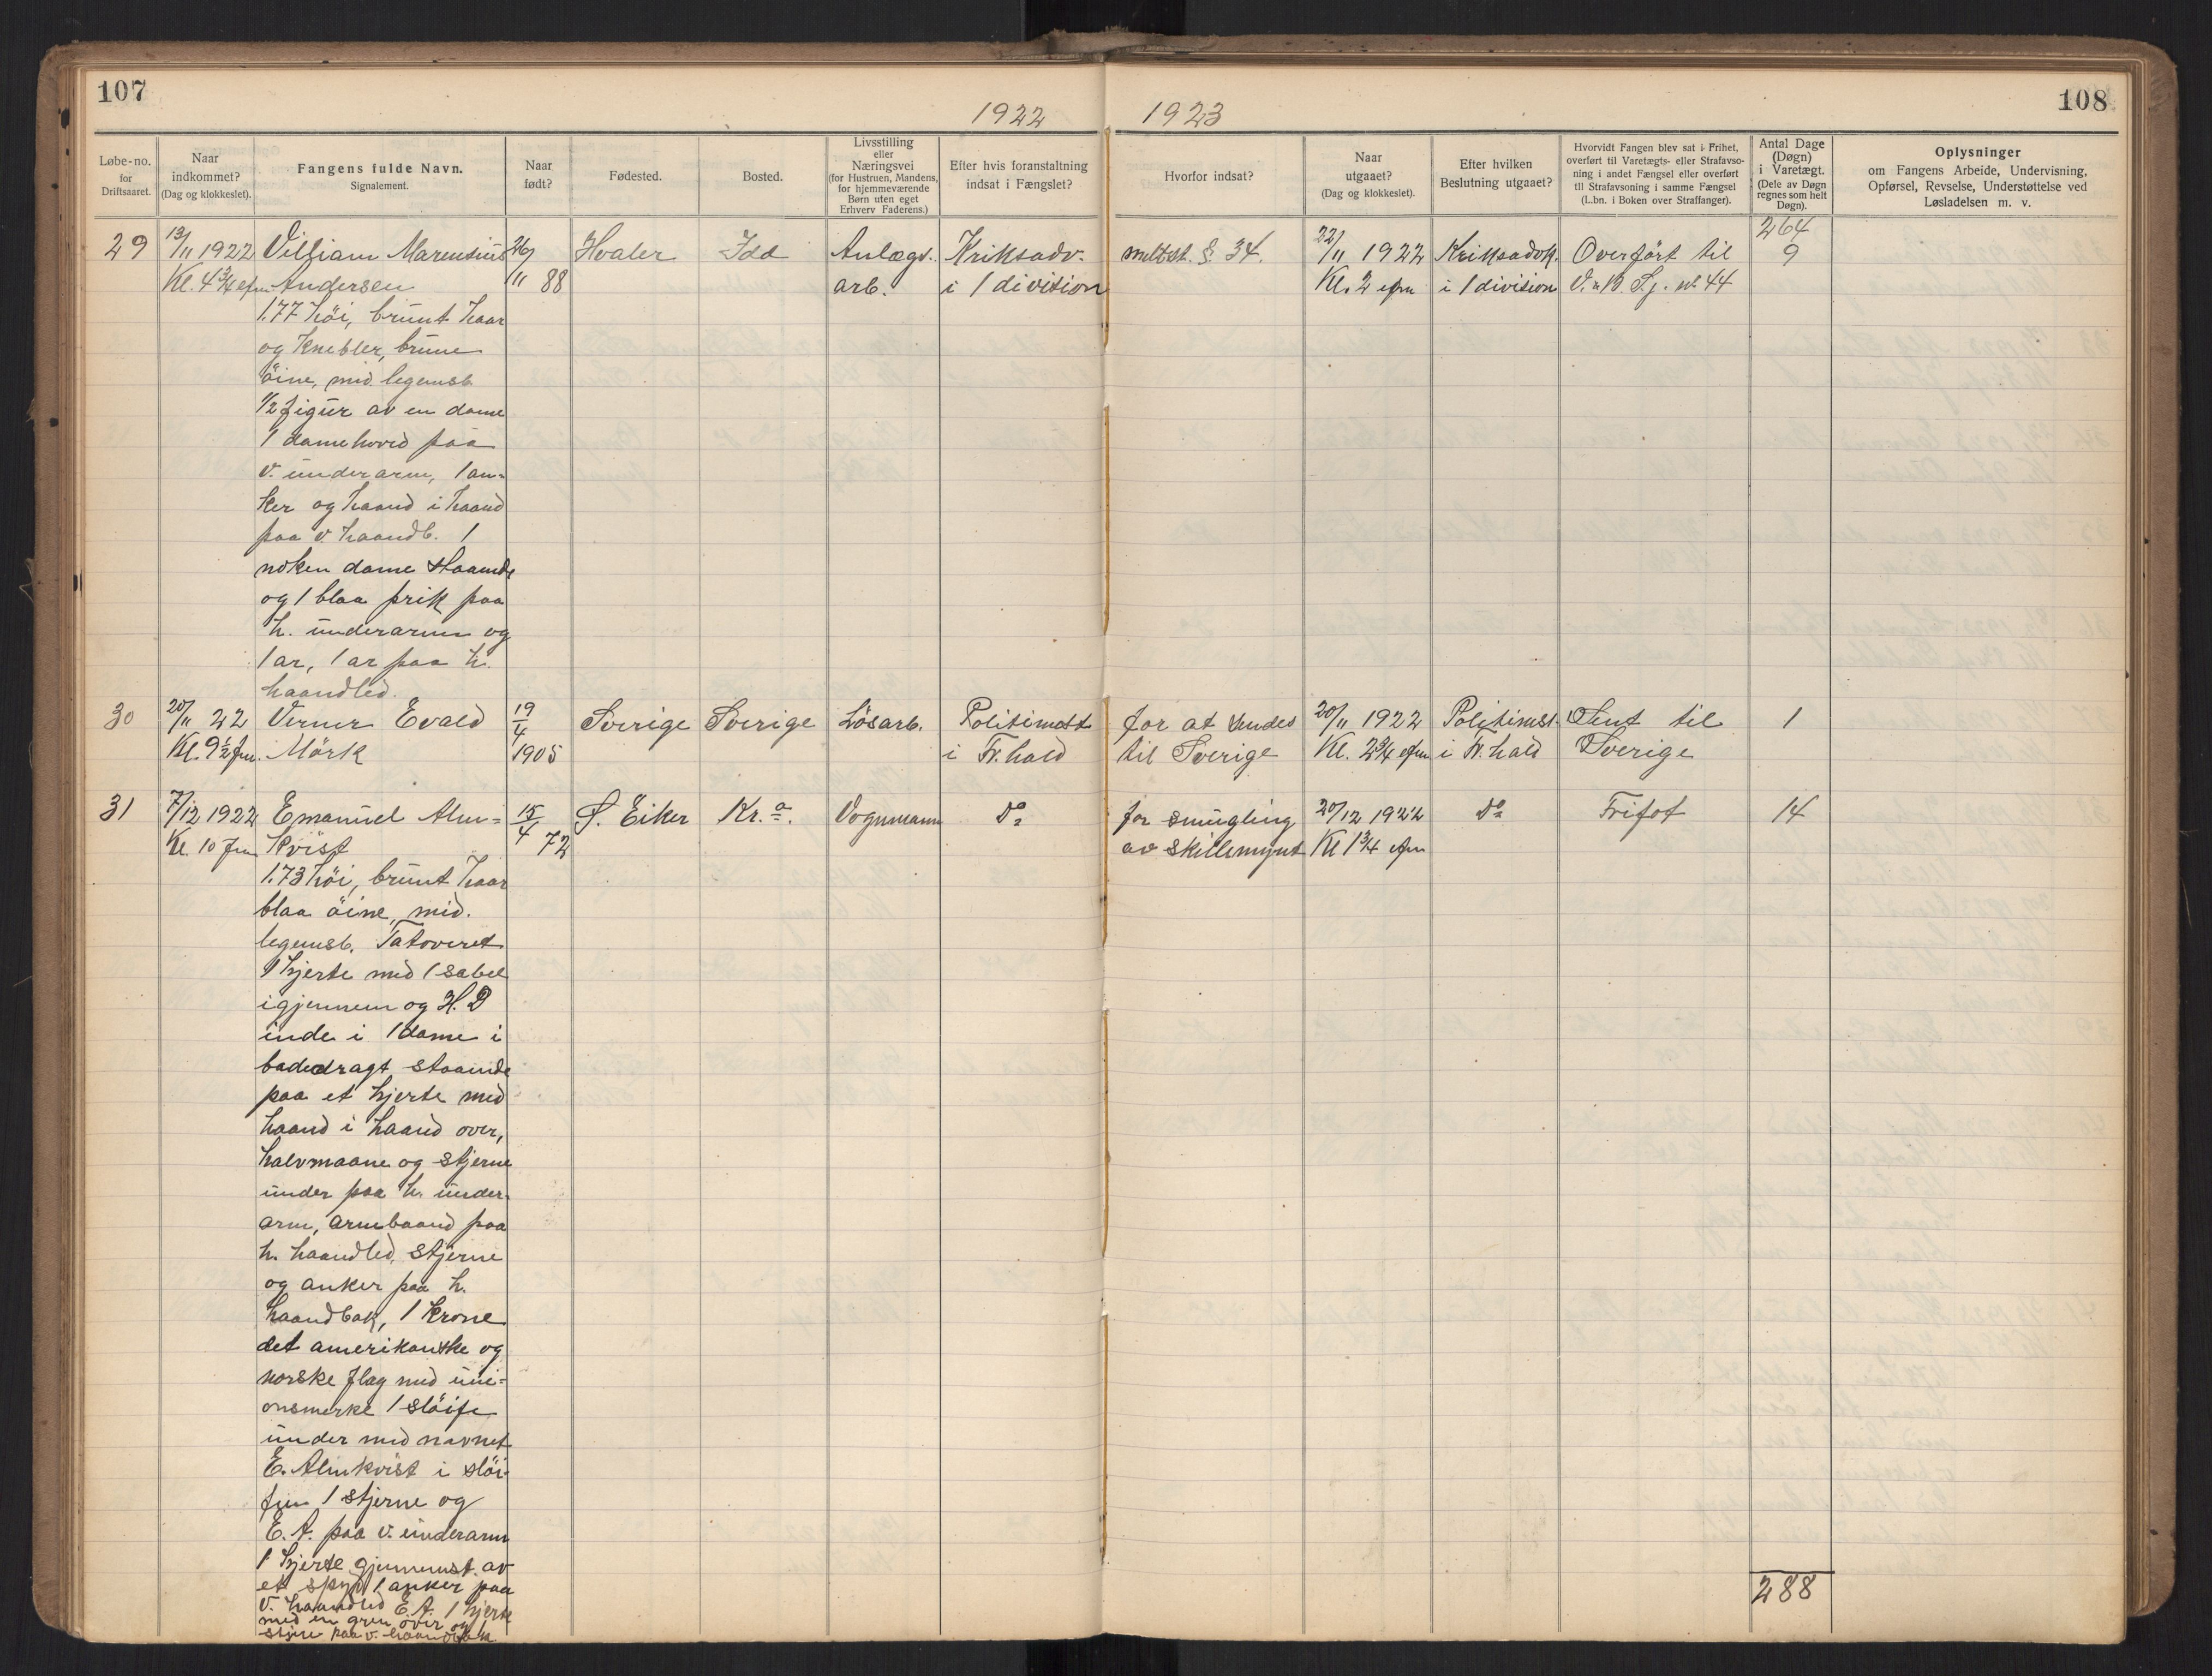 107
1922
Løbe-no.
for
Driftsaaret.
Naar
indkommet?
(Dag og klokkeslet).
Fangens fulde Navn.
Signalement.
Naar
født?
Fødested.
Bosted.
Livsstilling
eller
Næringsvei
(for Hustruen, Mandens,
for hjemmeværende
Børn uten eget
Erhverv Faderens.)
Efter hvis foranstaltning
indsat i Fængslet?
29
13/11 1922
Kl. 4 3/4 efm
Villiam Marensius
Andersen
1.77 höi, brunt haar
og Knebler, brune
öine, mid. legemsb.
1/2 figur av en dame
1 damehoved paa
v. underarm, 1 an-
ker og haand i haand
paa v. haandb. 1
nöken dame staaende
og 1 blaa prik paa
h. underarm og
1 ar, 1 ar paa h.
haandled.
26/11 88
Hvaler
Idd
Anlægs.
arb.
Kriksadv.
i 1 division
30
20/11 22
Kl. 9 1/2 fm.
Verner Evald
Mörk
19/4
1905
Sverige
Sverige
Lösarb.
Politimest
i Fr.hald
31
7/12 1922
Kl. 10 fm
Emanuel Alm-
kvist
1.73 höi, brunt haar
blaa öine, mid.
legemsb. Tatoveret
1 hjerte med 1 sabel
igjennem og H. D
inde i 1 dame i
badedragt staaende
paa et hjerte med
haand i haand over,
halvmaane og stjerne
under paa h. under-
arm, armbaand paa
h. haandled, stjerne
og anker paa h.
haandbak, 1 krone
det amerikanske og
norske flag med uni-
onsmerke 1 slöife
under med navnet
E. Almkvist i slöi-
fen 1 stjerne og
E. A. paa v. underarm
1 hjerte gjennemst. av
et spyd 1 anker paa
v. haandled E. A. 1 hjerte
med en gren over og 1
stjerne paa v. haandbak.
15/4 72
S. Eiker
Kr.a.
Vognmann
Do
108
1923
Hvorfor indsat?
Naar
utgaaet?
(Dag og klokkeslet).
Efter hvilken
Beslutning utgaaet?
Hvorvidt Fangen blev sat i Frihet,
overført til Varetægts- eller Strafavso-
ning i andet Fængsel eller overført
til Strafavsoning i samme Fængsel
(L.bn. i Boken over Straffanger).
Antal Dage
(Døgn)
i Varetægt.
(Dele av Døgn
regnes som helt
Døgn).
Oplysninger
om Fangens Arbeide, Undervisning,
Opførsel, Revselse, Understøttelse ved
Løsladelsen m. v.
264
milst. §. 34.
22/11 1922
Kl. 2 efm
Kriksadvk.
i 1 division
Overfört til
V. n B. S.j. no 44
9
for at sendes
til Sverige
20/11 1922
Kl. 2 3/4 efm
Politimst.
i Fr.hald
Sent til
Sverige
1
for smugling
av skillemynt
20/12 1922
Kl 1 3/4 efm
Do
Frifot
14
288